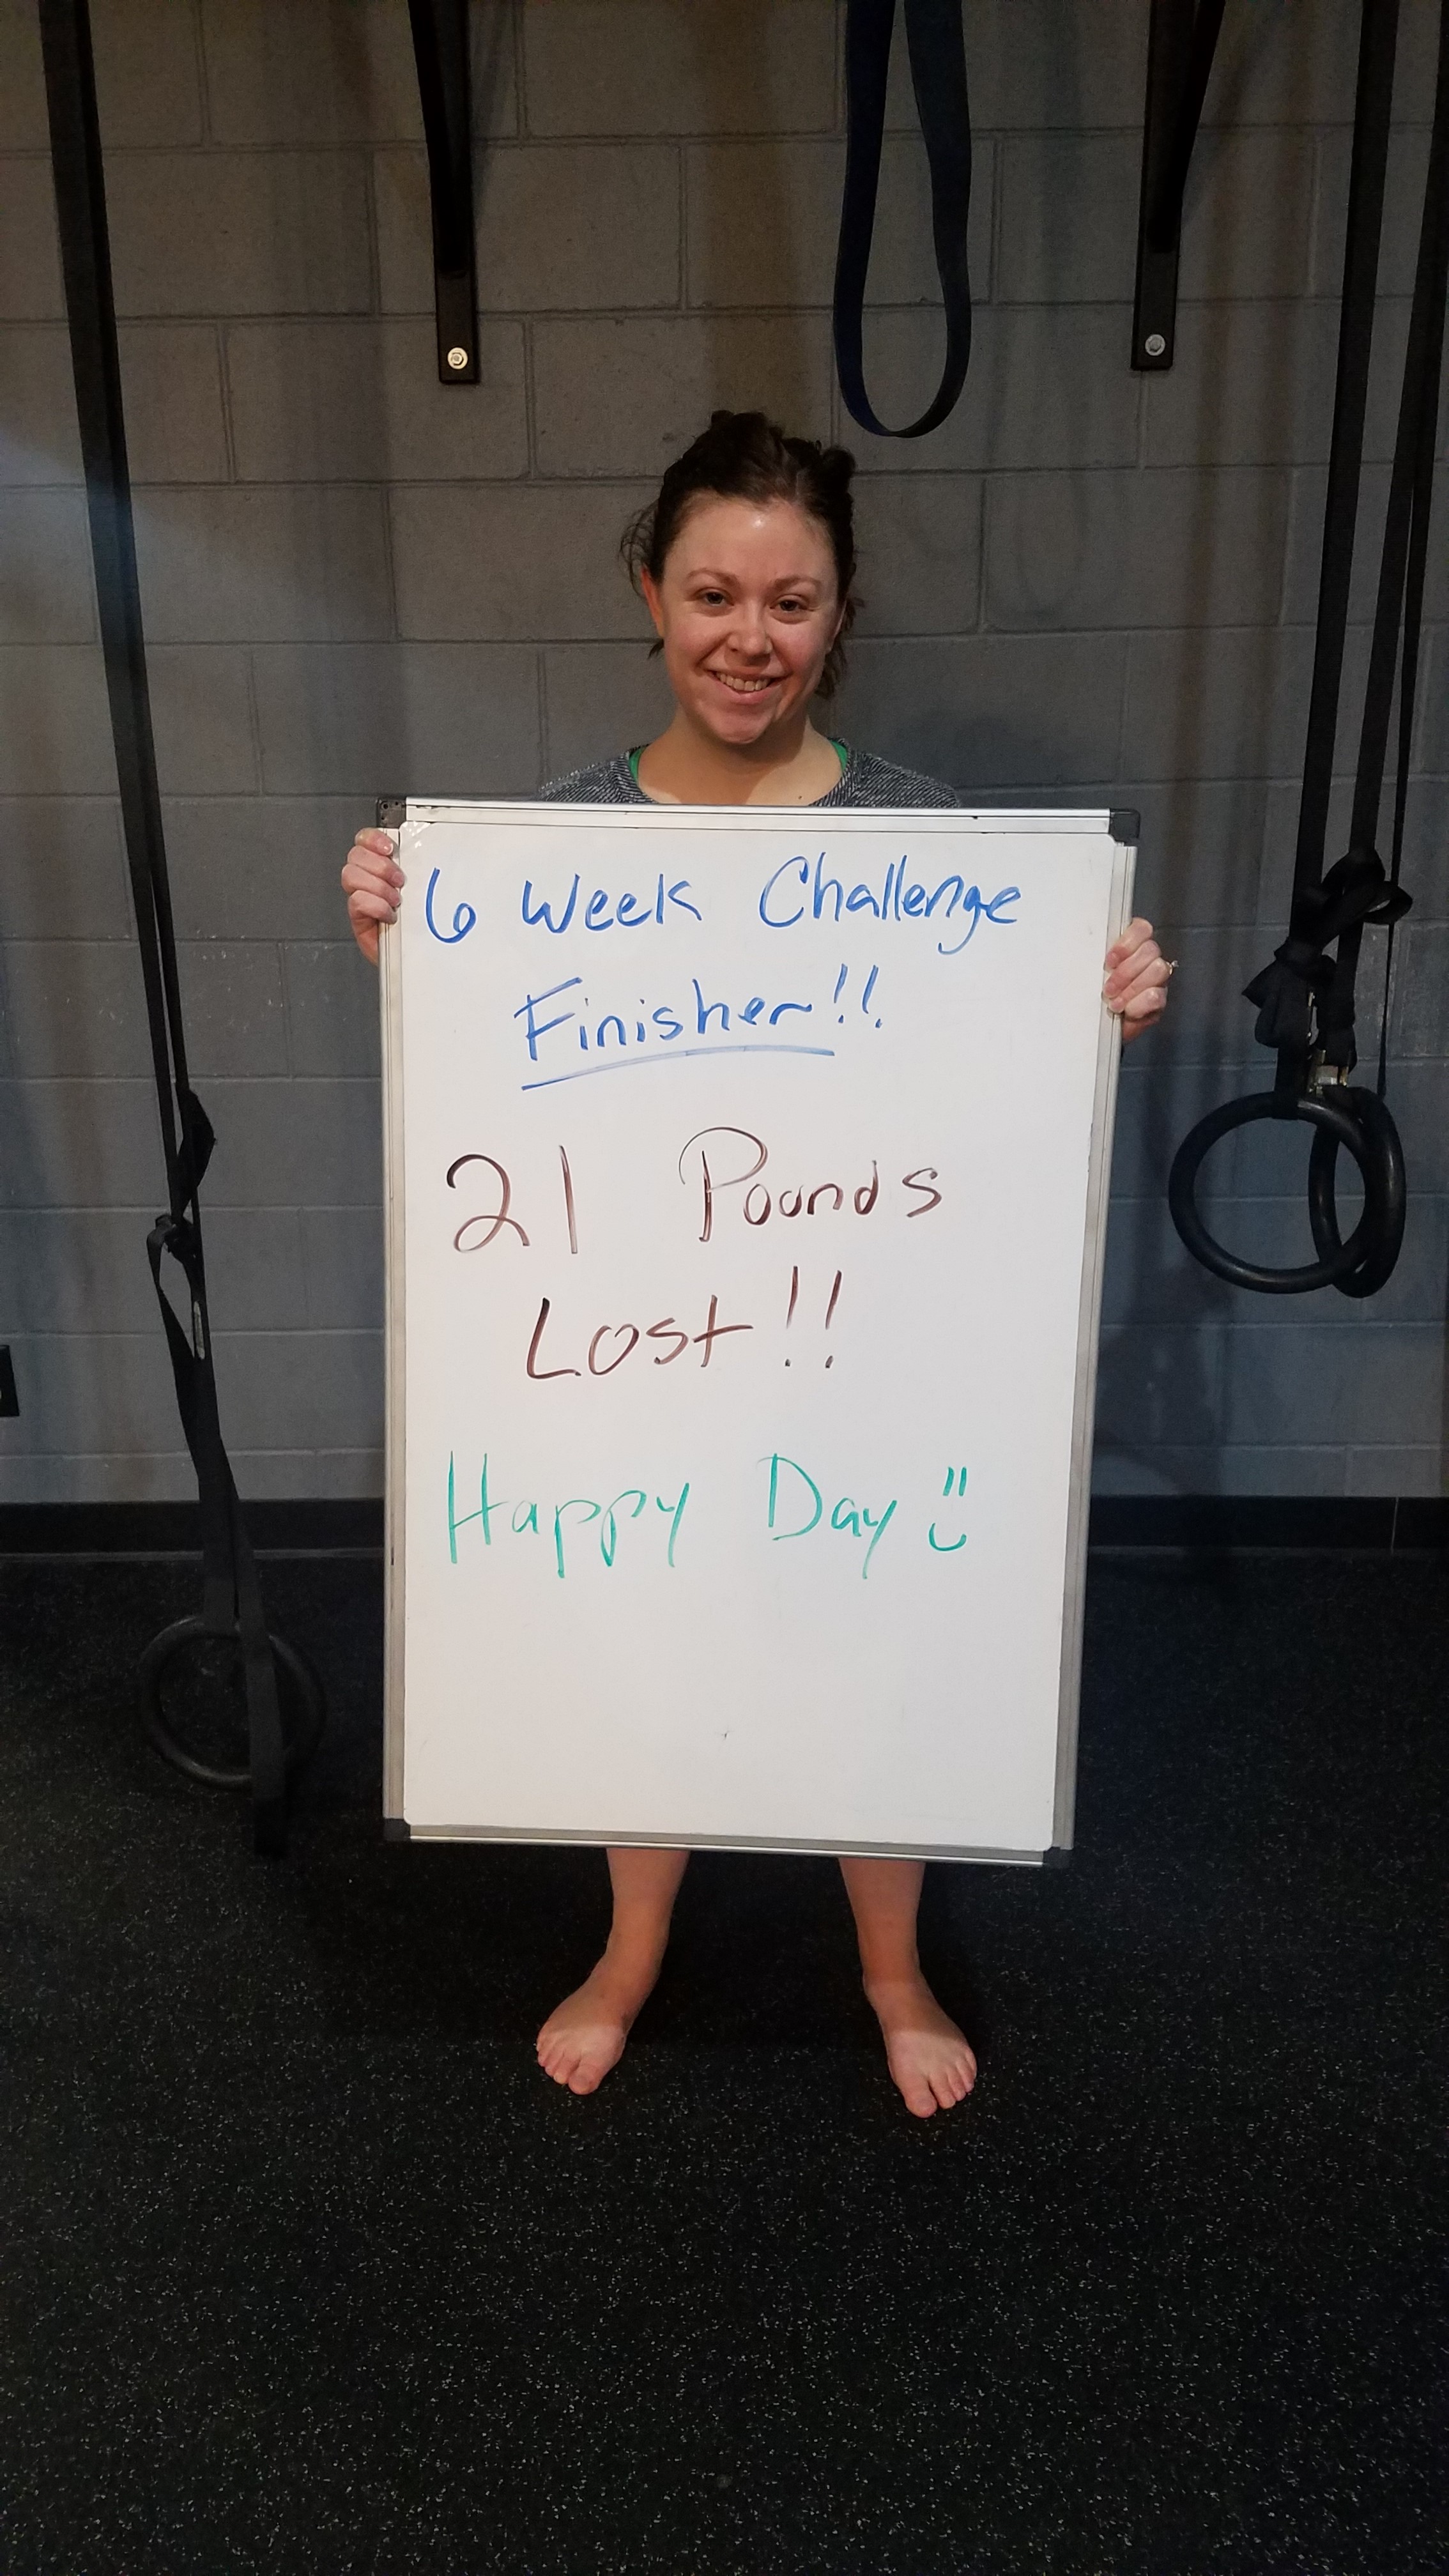 6 Week Challenge
Finisher!!
21 Pounds
Lost!!
Happy Day :)